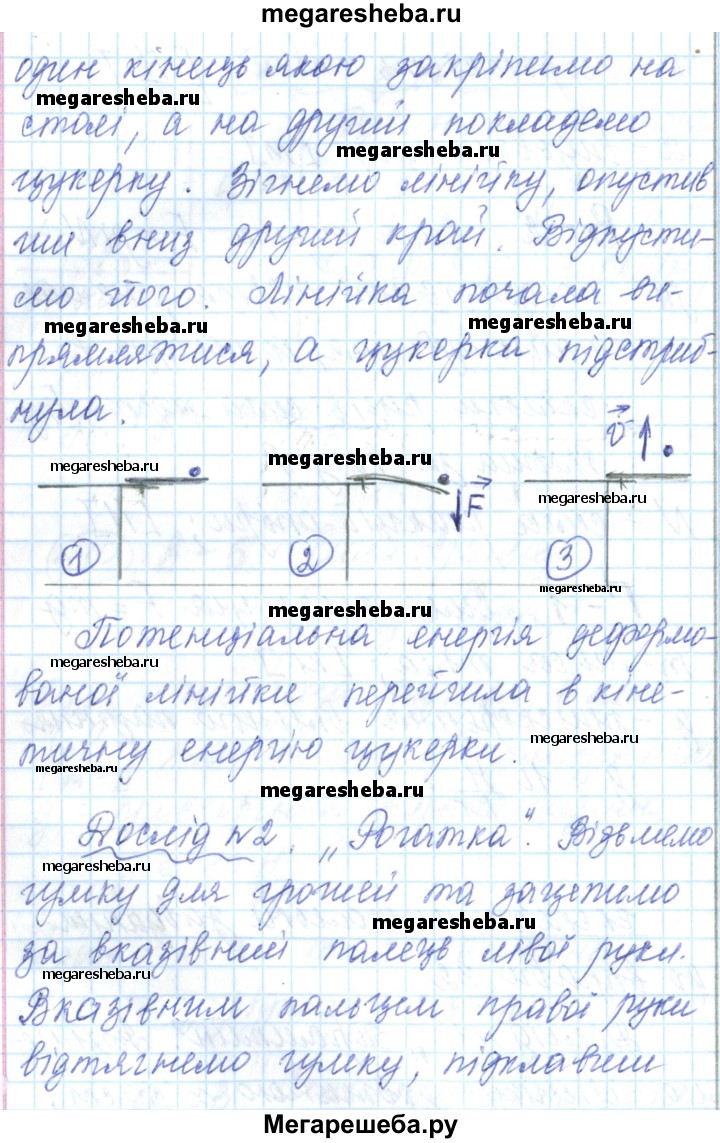 megaresheba.ru
один кінець якою закріпимо на
megaresheba.ru
столі, а на другий покладемо
megaresheba.ru
цукерку. Зігнемо лінійку, опустив
ши вниз другий край. Відпусти-
мо його. Лінійка почала ви-
megaresheba.ru
megaresheba.ru
прямлятися, а цукерка підстриб-
нула.
v
megaresheba.ru
megaresheba.ru
megaresheba.ru
F
1
2
3
megaresheba.ru
megaresheba.ru
Потенціальна енергія деформо-
megaresheba.ru
ваної лінійки перейшла в кіне-
megaresheba.ru
тичну енергію цукерки.
megaresheba.ru
Дослід №2. „Рогатка“. Візьмемо
megaresheba.ru
гумку для грошей та зачепимо
megaresheba.ru
за вказівний палець лівої руки.
megaresheba.ru
Вказівним пальцем правої руки
відтягнемо гумку, підклавши
Мегарешеба.ру